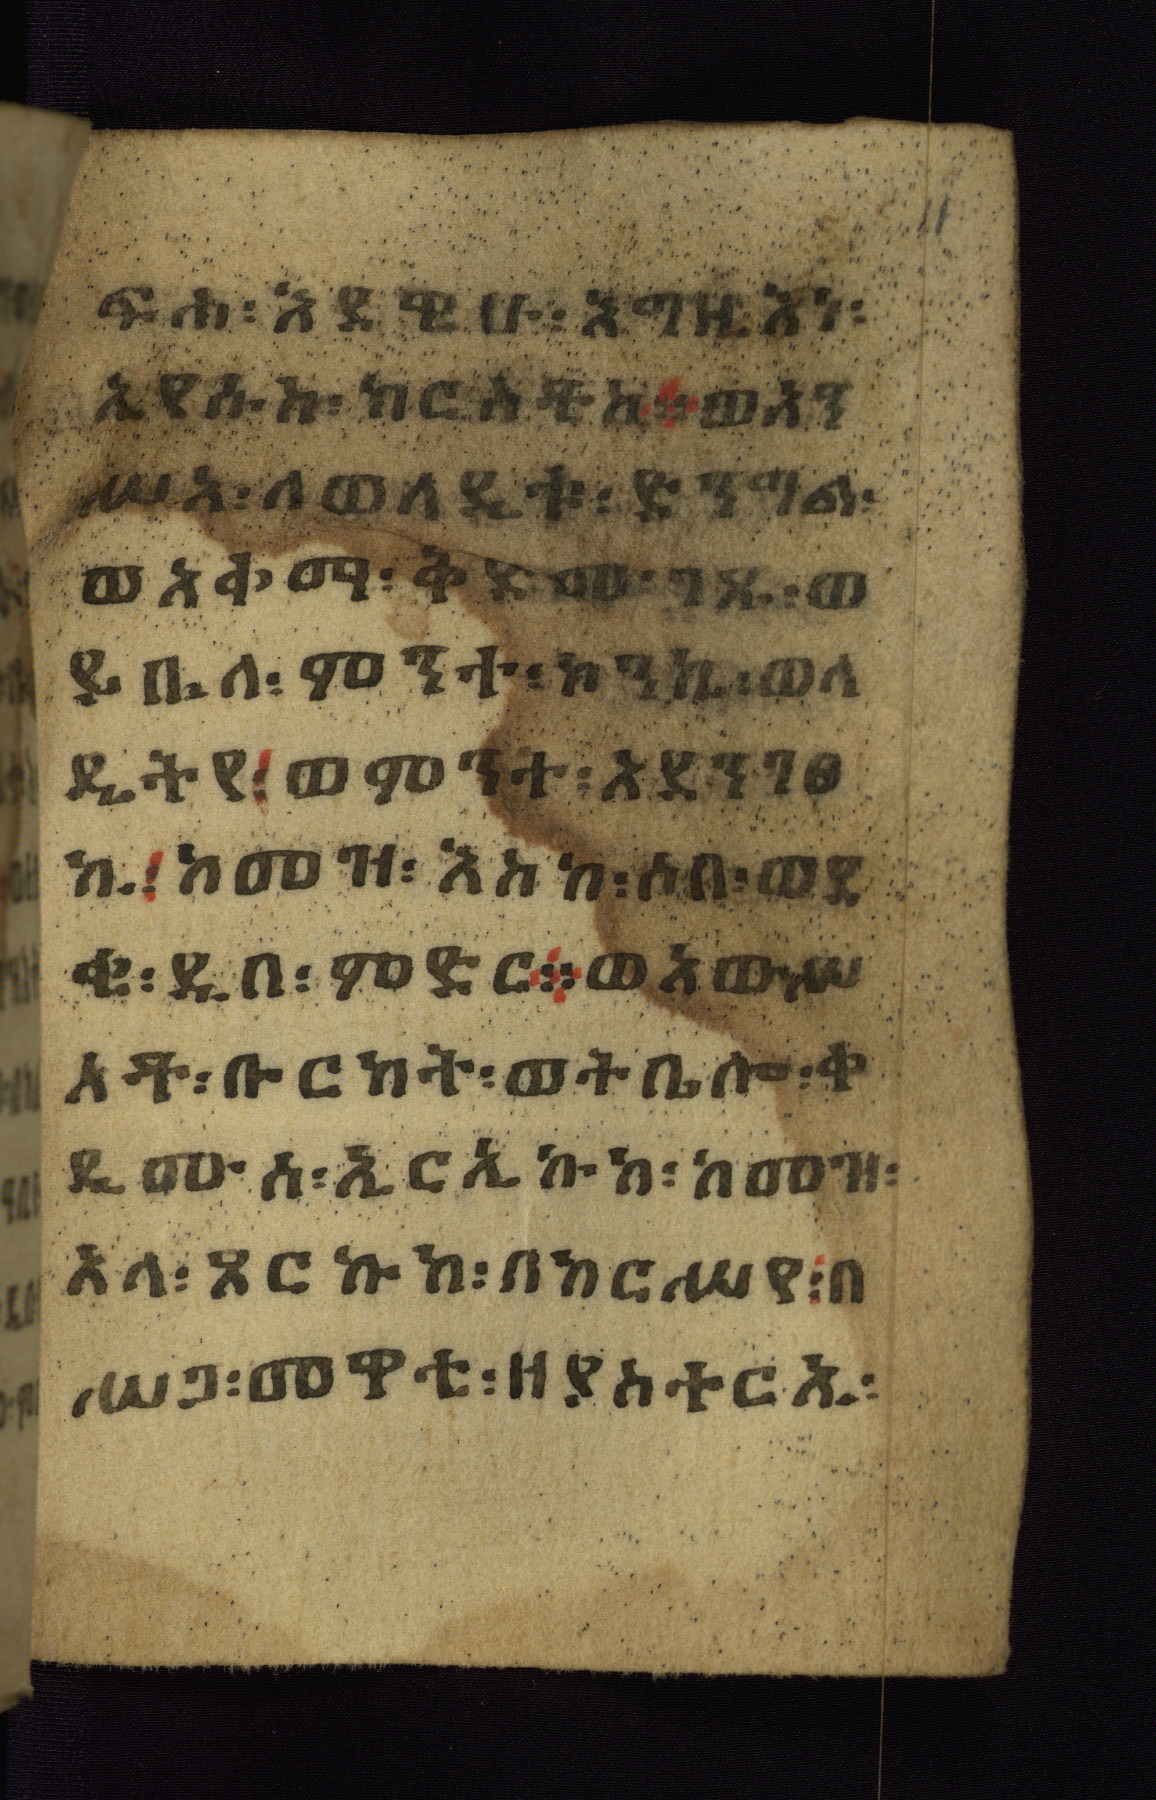 ፍሑ፡ እደዊሁ፡ እግዚእነ፡
ኢየሱስ፡ ክርስቶስ፨ወአን
ሥአ፡ ለወለዲቱ፡ ድንግል፡
ወአቀማ፡ ቅድሙ፡ ገጹ፡ ወ
ይቤላ፡ ምንተ፡ ኮንኪ፡ ወላ
ዲትየ፡ ወምንት፡ አደንገፀ
ኪ፡ ከመዝ፡ እስከ፡ ሰበ፡ ወደ
ቂ፡ ዲበ፡ ምድር፨ወአውሥ
አቶ፡ ቡርክት፡ ወትቤሎ፡ ቀ
ዲሙስ፡ ኢርኢኩከ፡ ከመዝ፡
አላ፡ ጾርኩከ፡ በከርሥየ፡ በ
ሥጋ፡ መዋቲ፡ ዘያስተርኢ፡
11